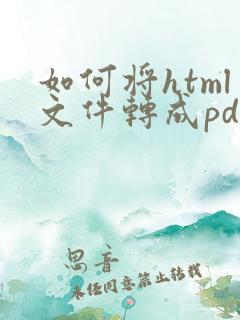 如何将html
文件轉成pd
思音
未经同意禁止转载